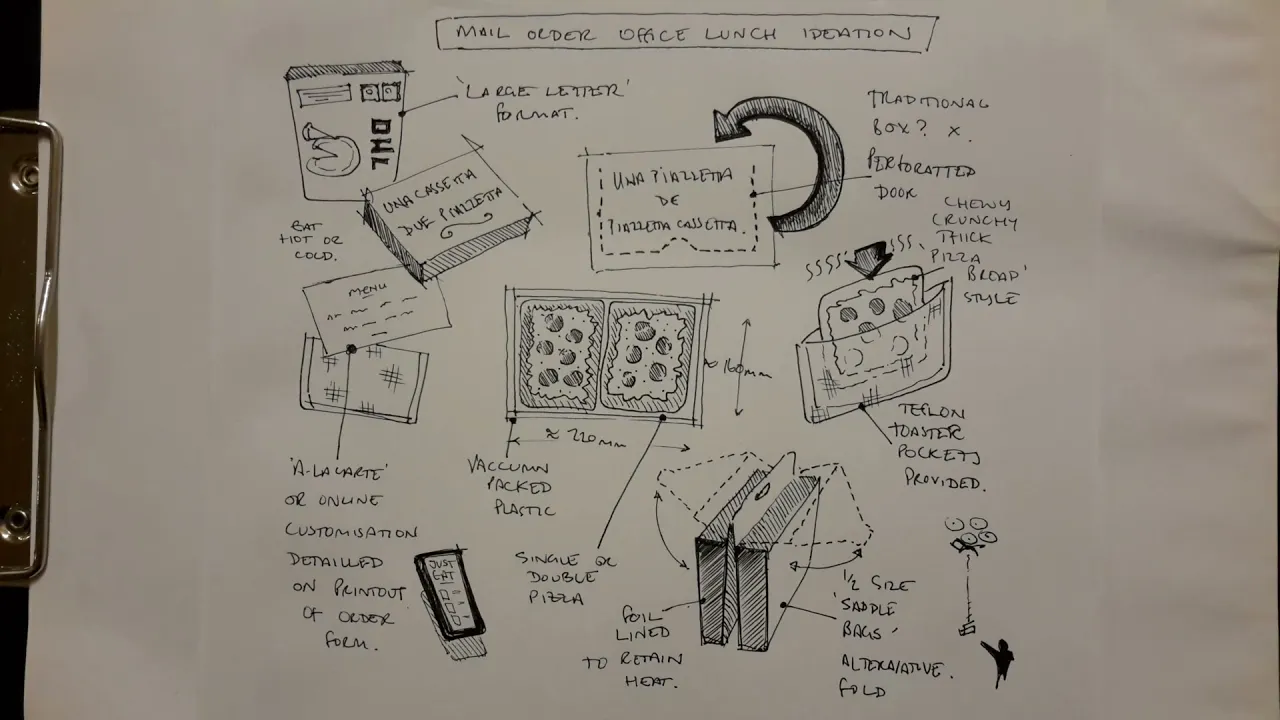 MAIL ORDER OFFICE LUNCH IDEATION
'LARGE LETTER'
FORMAT.
DHL
UNA CASSETTA
DUE PIAZZETTA
EAT
HOT OR
COLD.
UNA PIAZZETTA
DE
PIAZZETTA CASSETTA.
TRADITIONAL
BOX? X.
PERFORATTED
DOOR
CHEWY
CRUNCHY
THICK
PIZZA
'BROAD'
STYLE
MENU
≈ 160mm
≈ 220mm
TEFLON
TOASTER
POCKETS
PROVIDED.
'A-LA CARTE'
OR ONLINE
CUSTOMISATION
DETAILLED
ON PRINTOUT
OF ORDER
FORM.
VACCUMN
PACKED
PLASTIC
JUST
EAT
SINGLE OR
DOUBLE
PIZZA
FOIL
LINED
TO RETAIN
HEAT.
1/2 SIZE
'SADDLE
BAGS'
ALTERNATIVE.
FOLD